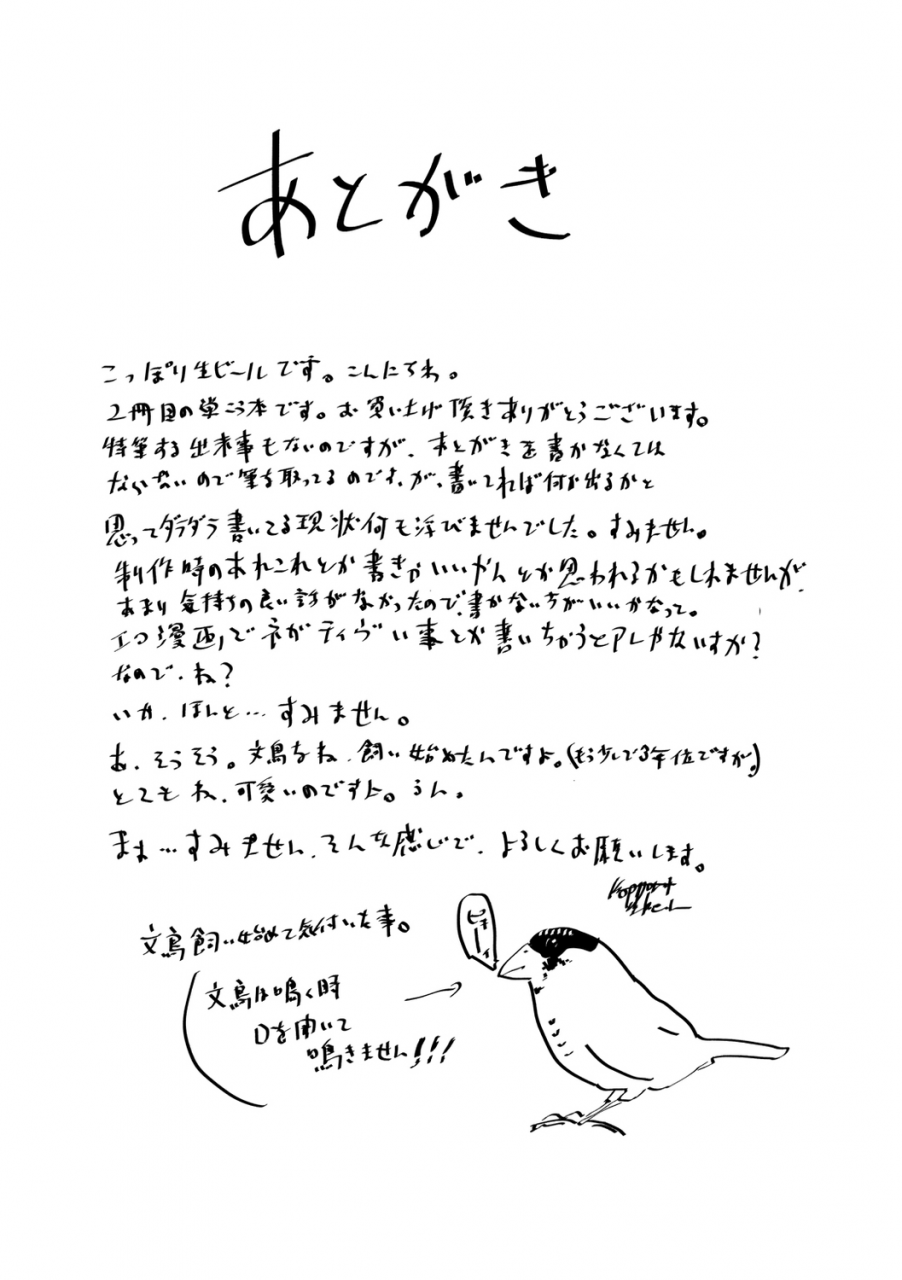 あとがき
こっぽり生ビールです。こんにちわ。
2冊目の単こう本です。お買い上げ頂きありがとうございます。
特筆する出来事もないのですが、あとがきを書かなくては
ならないので筆を取ってるのです。が、書いてれば何か出るかと
思ってダラダラ書いてる現状何も浮びませんでした。すみません。
制作時のあれこれとか書きゃいいやんとか思われるかもしれませんが、
あまり気持ちの良い話がなかったので、書かない方がいいかなって。
エロ漫画でネガティヴい事とか書いちゃうとアレやないすか?
なので、ね?
いや、ほんと…すみません。
あ、そうそう。文鳥をね、飼い始めたんですよ。(もう少しで3年位ですが。)
とてもね、可愛いのですよ。うん。
まぁ…すみません、そんな感じで、よろしくお願いします。
文鳥飼い始めて気付いた事。
ピキーィ
文鳥は鳴く時
口を開いて
鳴きません!!!